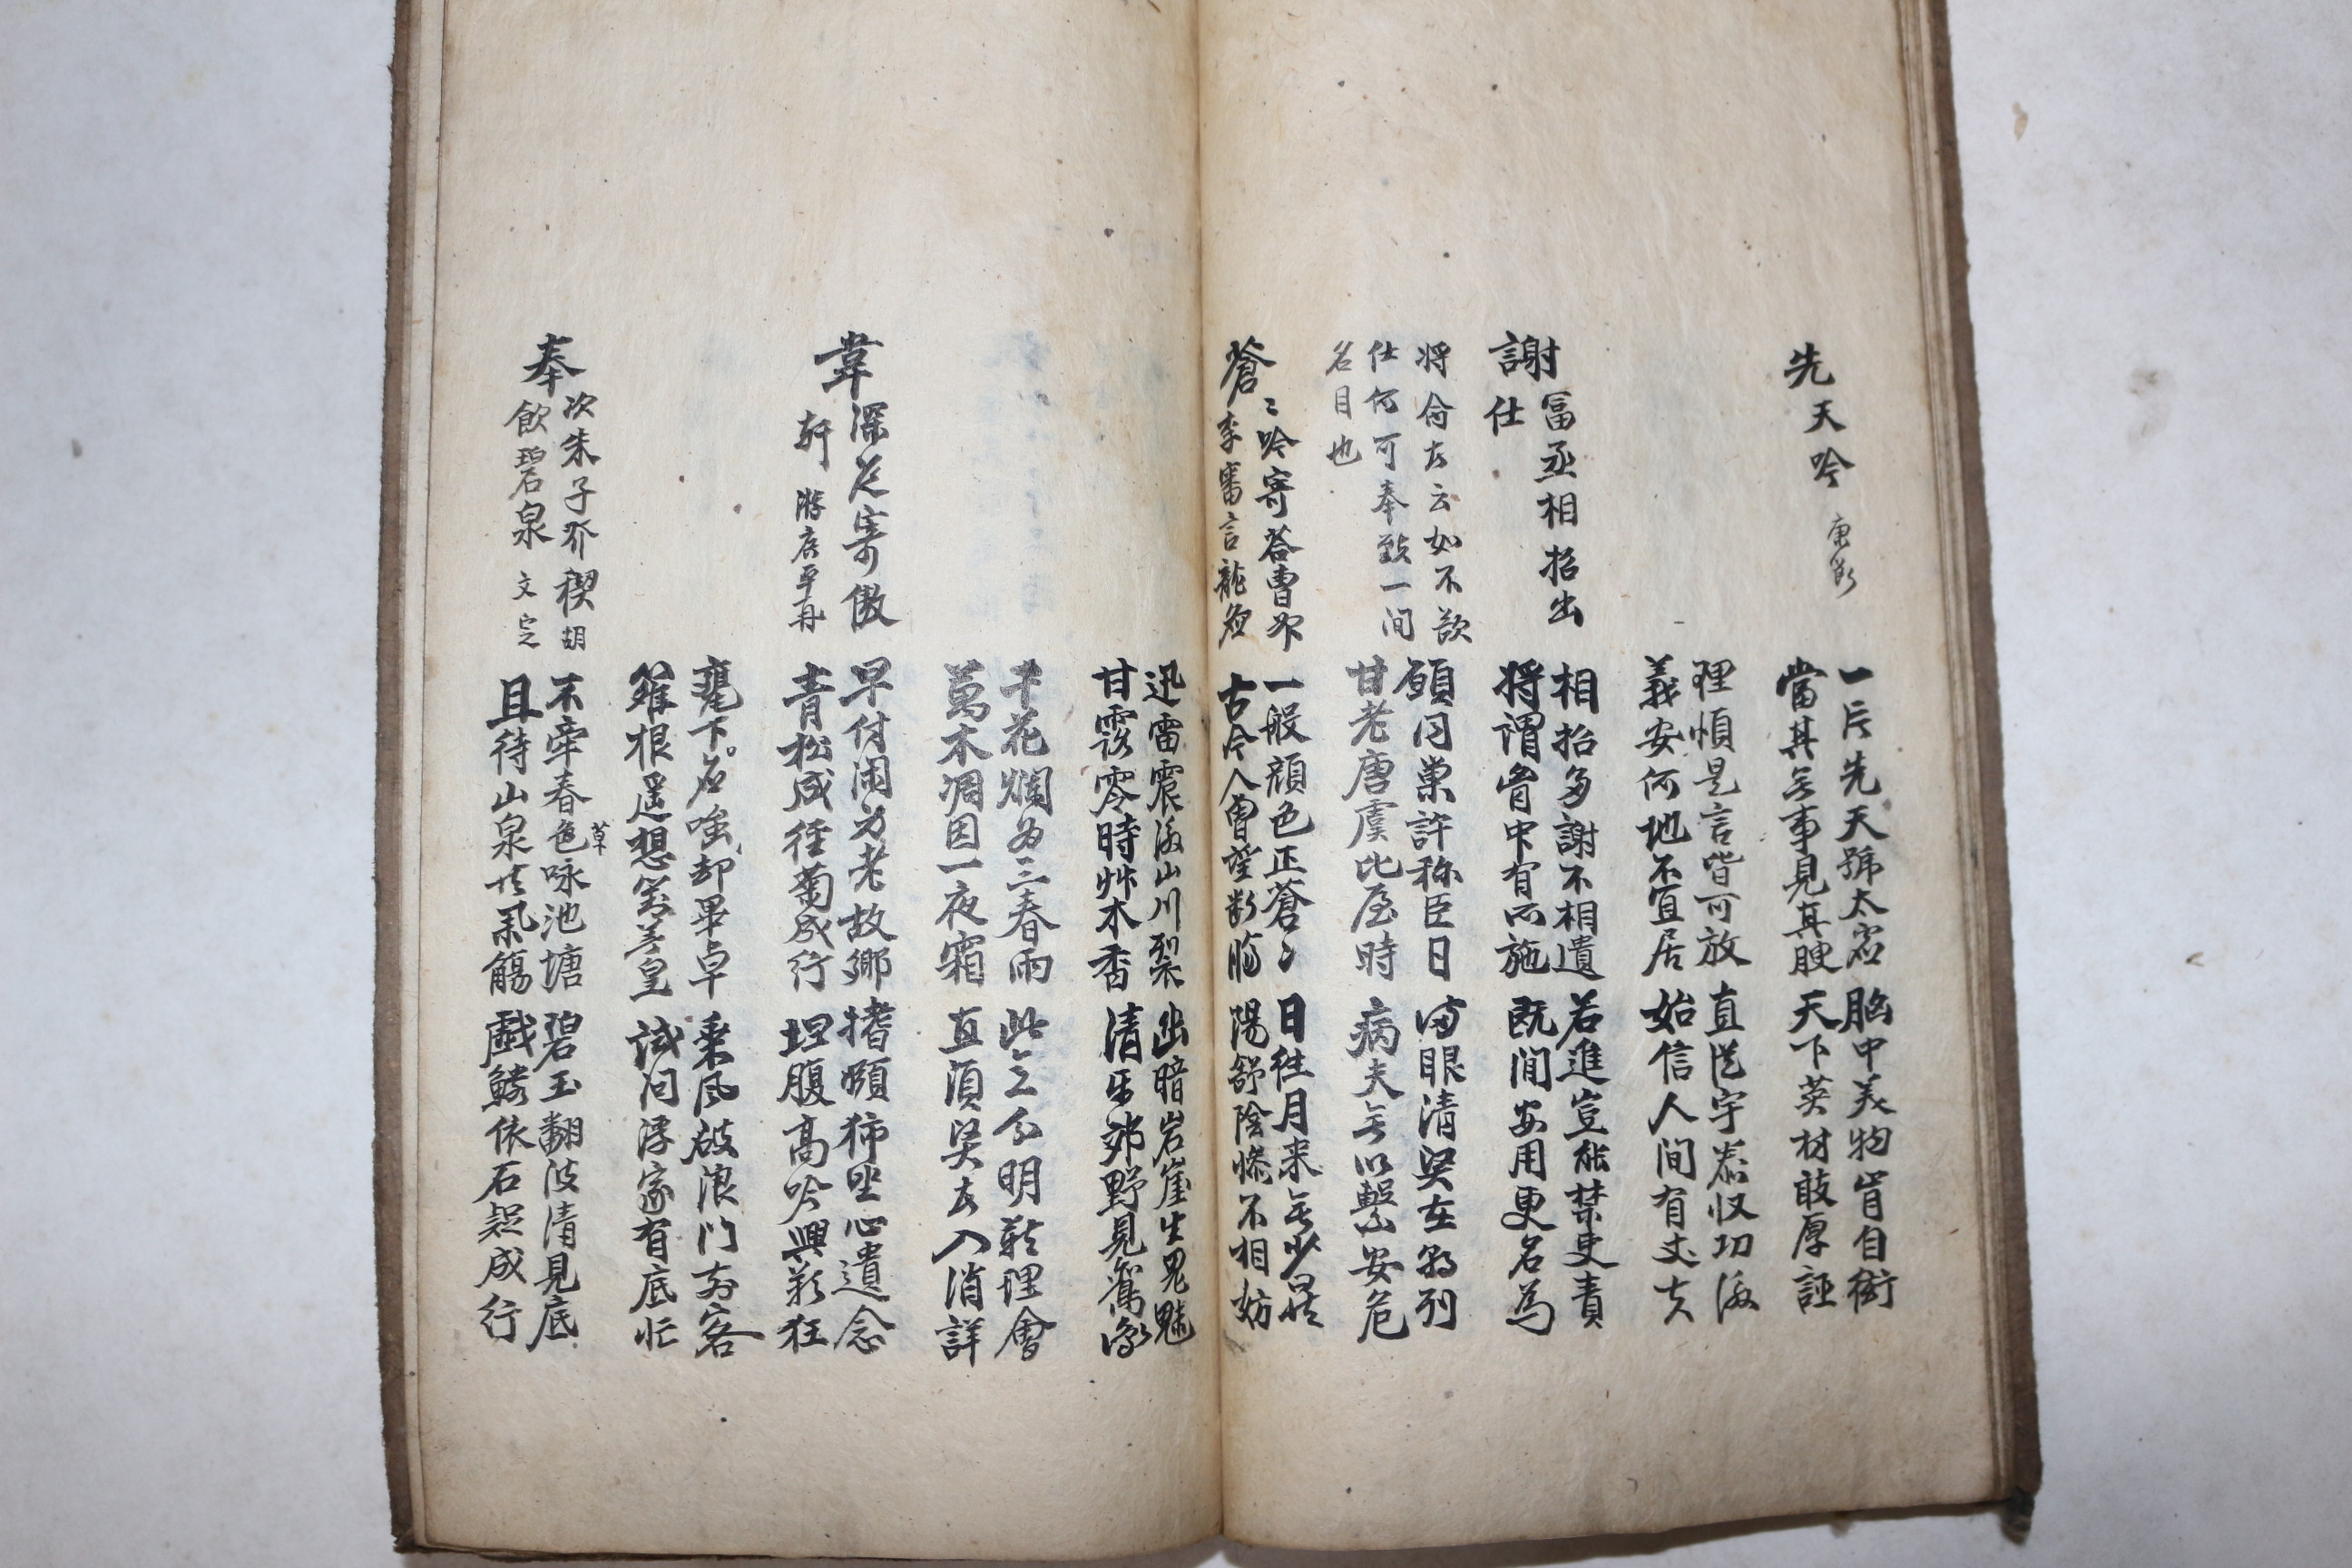 先天吟 康節
一片先天號太虛 胸中美物肯自衒
當其無事見真腴 天下英材敢厚誣
理順是言皆可放 直從宇泰收功後
義安何地不宜居 始信人間有丈夫
謝富丞相招出
仕
相招多謝不相遺 若進豈能禁吏責
將謂胷中有所施 既閒安用更名為
將命者云如不欲
仕何可奉致一閒
名目也
願同巢許称臣日 滿眼清賢在朝列
甘老唐虞比屋時 病夫無以繫安危
蒼〻吟寄答曹州
李審言龍圖
一般顔色正蒼〻 日往月来無少異
古今人曾望斷膓 陽舒陰慘不相妨
迅雷震後山川裂 幽暗岩崖生鬼魅
甘露零時艸木香 清平郊野見鸞凰
千花爛為三春雨 此意分明難理會
萬木凋因一夜霜 直須賢者入消詳
韋深道寄傲
軒
早付閑方老故鄉 搘頤獨坐心遺念
青松成徑菊成行 坦腹高吟興欻狂
甕下名嗤却畢卓 乘風破浪門前客
籬根遥想對羲皇 試问浮家有底忙
奉次朱子介稧 胡
飲碧泉 文定
不牽春色草咏池塘 碧玉翻波清見底
且待山泉共汎觴 戲鱗依石疑成行